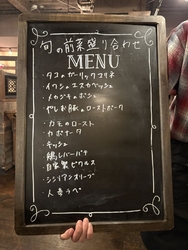 旬の前菜盛り合わせ
MENU
・タコのガーリックマリネ
・イワシエスカベッシュ
・メカジキのポシェ
・やしお豚のローストポーク
・カモのロースト
・カポナータ
・キッシュ
・鶏レバーパテ
・自家製ピクルス
・シシリアンオリーブ
・人参ラペ